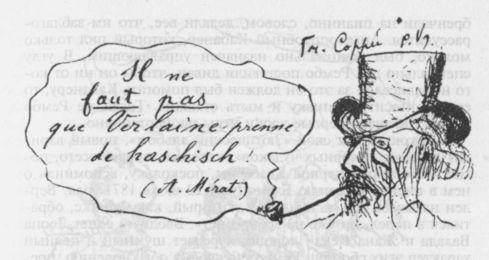 Il ne
faut pas
que Verlaine prenne
de haschisch!
(A. Mérat.)
Fr. Coppée P. V.